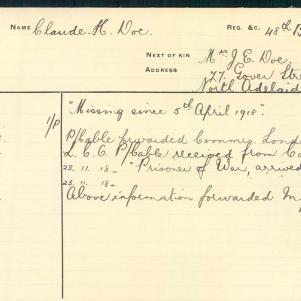 NAME Claude. H. Doe. REG. &C. 48th B
NEXT OF KIN Mrs J. E. Doe.
ADDRESS 77. Gover Stre
North Adelaid
"Missing since 5th April 1918".
1/P P/Cable forwarded Commrs. Lond
L. C. C. P/Cable received from Co
23. 11. 18 - "Prisoner of War, arrived
23. 11. 18 -
Above information forwarded